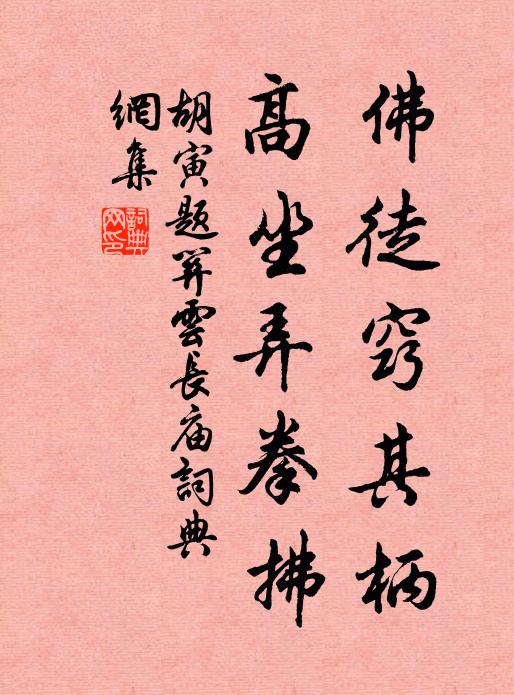 佛徒窃其柄
高坐弄拳拂
胡寅题关雲長庙詞典
網集
詞典
网印